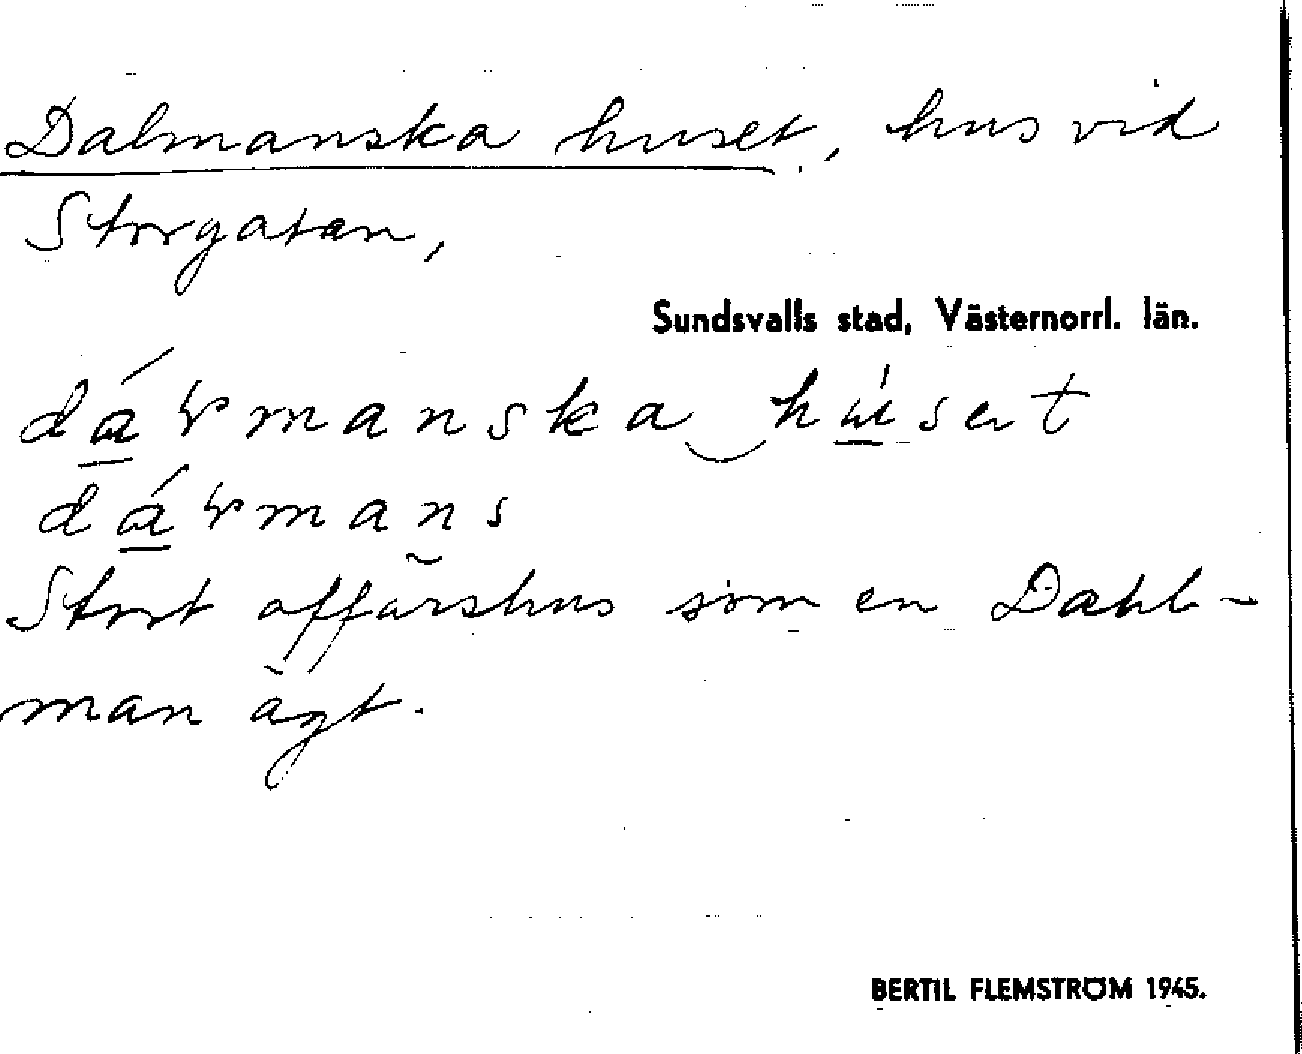 Dalmanska huset, hus vid
Storgatan,
Sundsvalls stad, Västernorrl. län.
manska
mans
Stort affärshus som en Dahl-
man ägt.
BERTIL FLEMSTRÖM 1945.